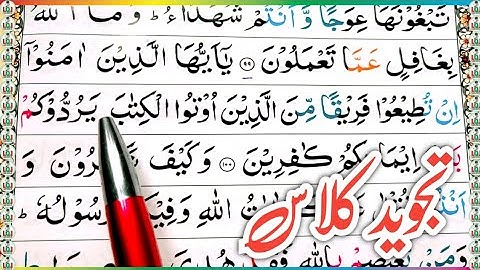 تَبۡغُوۡنَهَا عِوَجًا وَّاَنۡتُمۡ شُهَدَآءُ ؕ وَمَا اللّٰهُ
بِغَافِلٍ عَمَّا تَعۡمَلُوۡنَ ﴿۹۹﴾ يٰۤاَيُّهَا الَّذِيۡنَ اٰمَنُوۡۤا
اِنۡ تُطِيۡعُوۡا فَرِيۡقًا مِّنَ الَّذِيۡنَ اُوۡتُوا الۡكِتٰبَ يَرُدُّوۡكُمۡ
اِيۡمَانِكُمۡ كٰفِرِيۡنَ ﴿۱۰۰﴾ وَكَيۡفَ وَ
اللّٰهِ وَفِيۡكُمۡ رَسُوۡلُهٗ ؕ
وَمَنۡ يَّعۡتَصِمۡ بِاللّٰهِ فَقَدۡ هُدِىَ
تجوید کلاس